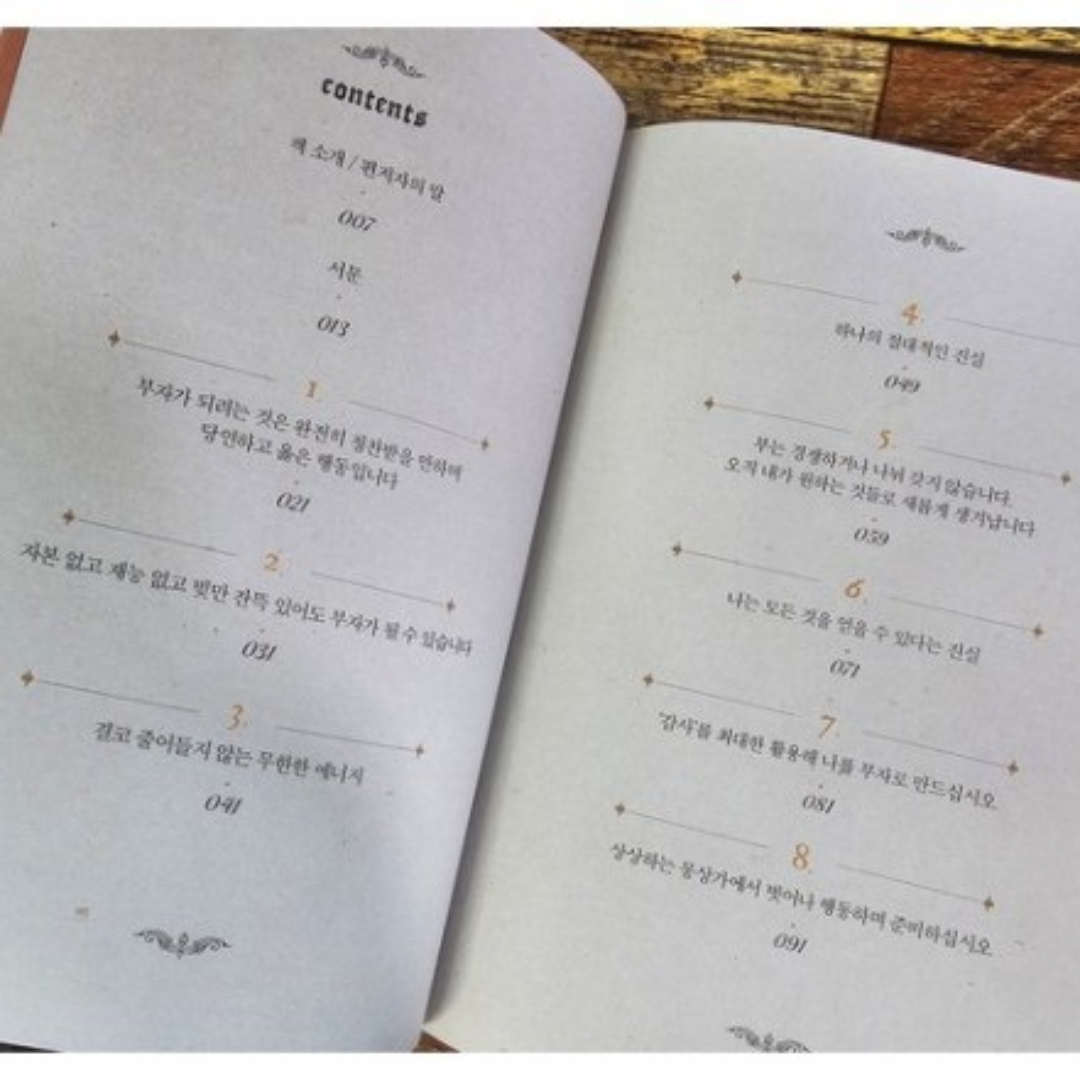 contents
책 소개 / 편저자의 말
007
서문
013
1.
부자가 되려는 것은 완전히 칭찬받을 만하며
당연하고 옳은 행동입니다
021
2.
자본 없고 재능 없고 빚만 잔뜩 있어도 부자가 될 수 있습니다
031
3.
결코 줄어들지 않는 무한한 에너지
041
4.
하나의 절대적인 진실
049
5.
부는 경쟁하거나 나눠 갖지 않습니다.
오직 내가 원하는 것들로 새롭게 생겨납니다
059
6.
나는 모든 것을 얻을 수 있다는 진실
071
7.
'감사'를 최대한 활용해 나를 부자로 만드십시오
081
8.
상상하는 몽상가에서 벗어나 행동하며 준비하십시오
091